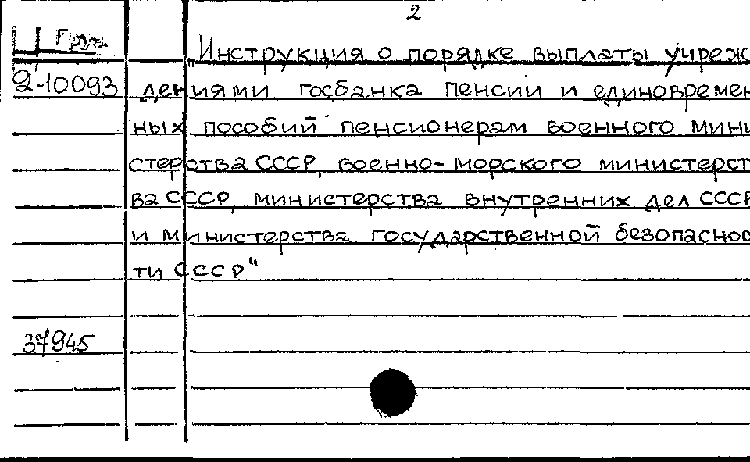 2
Ц Груз
„Инструкция о порядке выплаты учреж
9-10093 дениями госбанка пенсии и единовремен
ных пособий пенсионерам военного мини
стерства СССР, военно-морского министерст
ва СССР, министерства внутренних дел СССР
и министерства государственной безопаснос
ти СССР"
37945